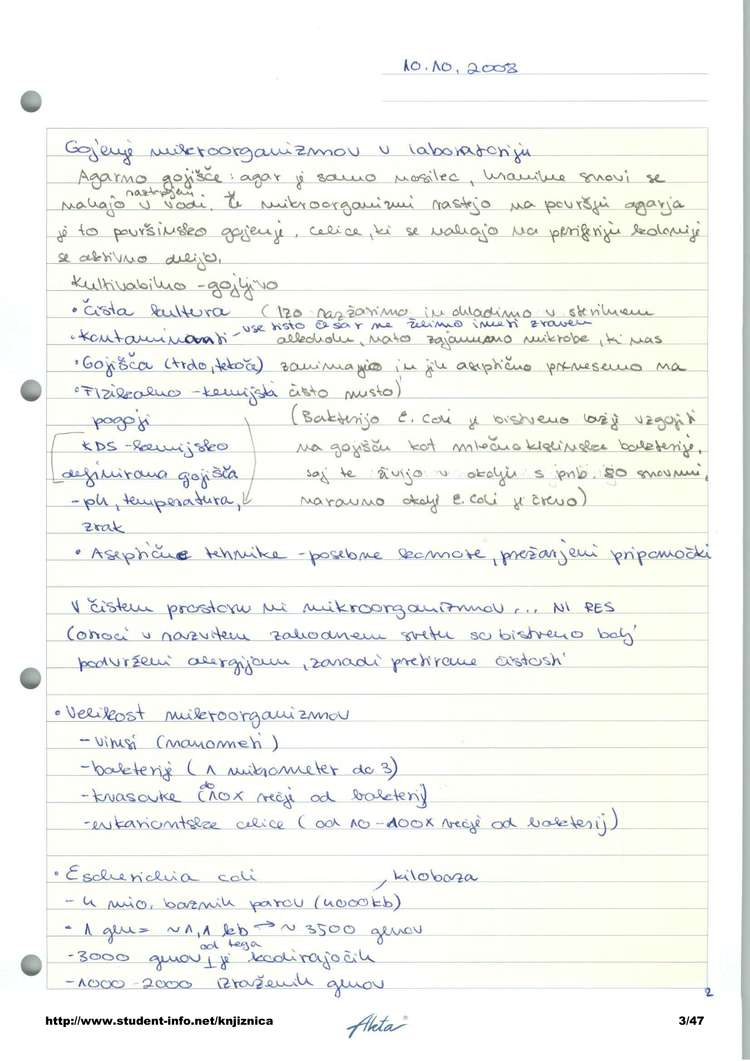 10.10.2003
Gojenje mikroorganizmov v laboratoriju
Agarno gojišče: agar je samo nosilec, hranilne snovi se
nahajo raztopljeni v vodi. Če mikroorganizmi rastejo na površju agarja
je to površinsko gojenje, celice, ki se nahajo na periferiju kolonije
se aktivno delijo.
Kultivabilno - gojljivo
• čista kultura (Izo razžarimo in ohladimo v sterilnem
• kontaminanti - vse tisto česar ne želimo imeti zraven
alkoholu, nato zajamemo mikrobe, ki nas
• Gojišča (trdo, tekoče) zanimajo in jih aseptično prenesemo na
• Fizikalno - kemijska čisto mesto)
pogoji (Bakterijo E. coli je bistveno lažje vzgojiti
KDS - kemijsko na gojišču kot mlečnokislinske bakterije,
definirana gojišča saj te živijo v okolju s prib. 50 snovmi,
- ph, temperatura, naravno okolje E. coli je črevo)
zrak
• Aseptične tehnike - posebne komore, prežarjeni pripomočki
V čistem prostoru ni mikroorganizmov... NI RES
(otroci v razvitem zahodnem svetu so bistveno bolj
podvrženi alergijam, zaradi pretirane čistosti
• Velikost mikroorganizmov
- virusi (nanometri)
- bakterije (1 mikrometer do 3)
- kvasovke (do 10x večji od bakterij)
- evkariontske celice (od 10-100x večje od bakterij)
• Escherichia coli kilobaza
- 4 mio. baznih parov (4000kb)
- 1 gen = ~1,1 kb → ~ 3500 genov
- 3000 genov od tega je kodirajočih
- 1000 - 2000 izraženih genov
2
http://www.student-info.net/knjiznica
Akta
3/47